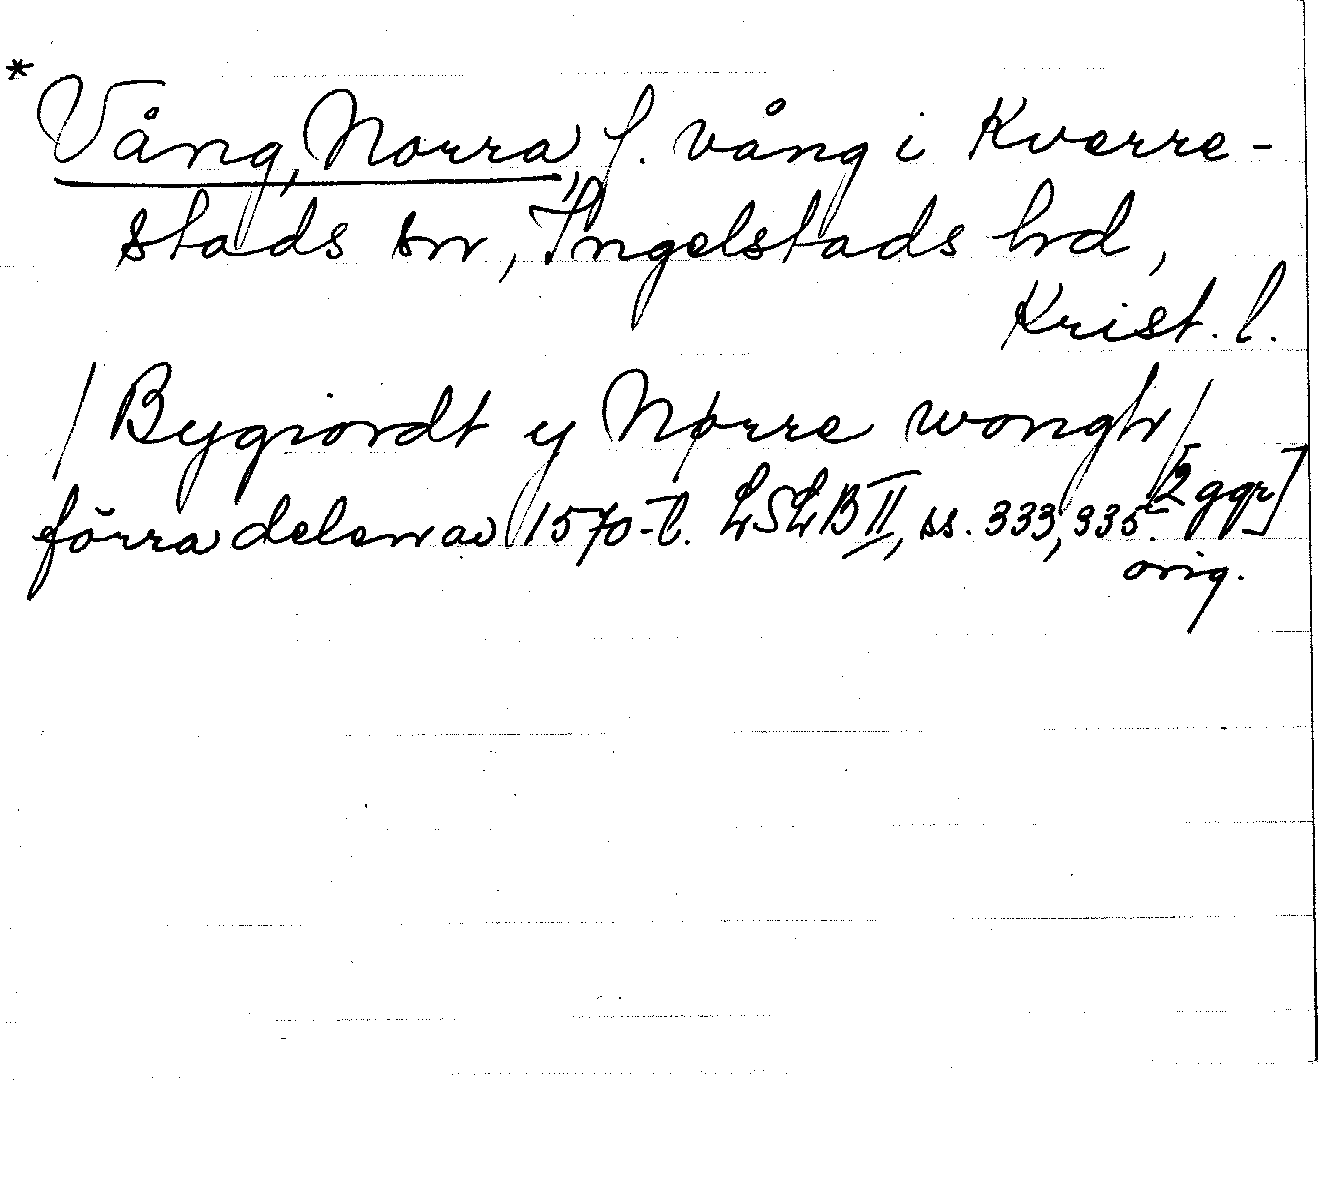 * Vång, Norra, f. vång i Kverre-
stads sn, Ingelstads hd,
Krist. l.
/Bygiordt y Nørre wongh/
förra delen av 1570-t. LSLB II, ss. 333, 335. [2 ggr]
orig.